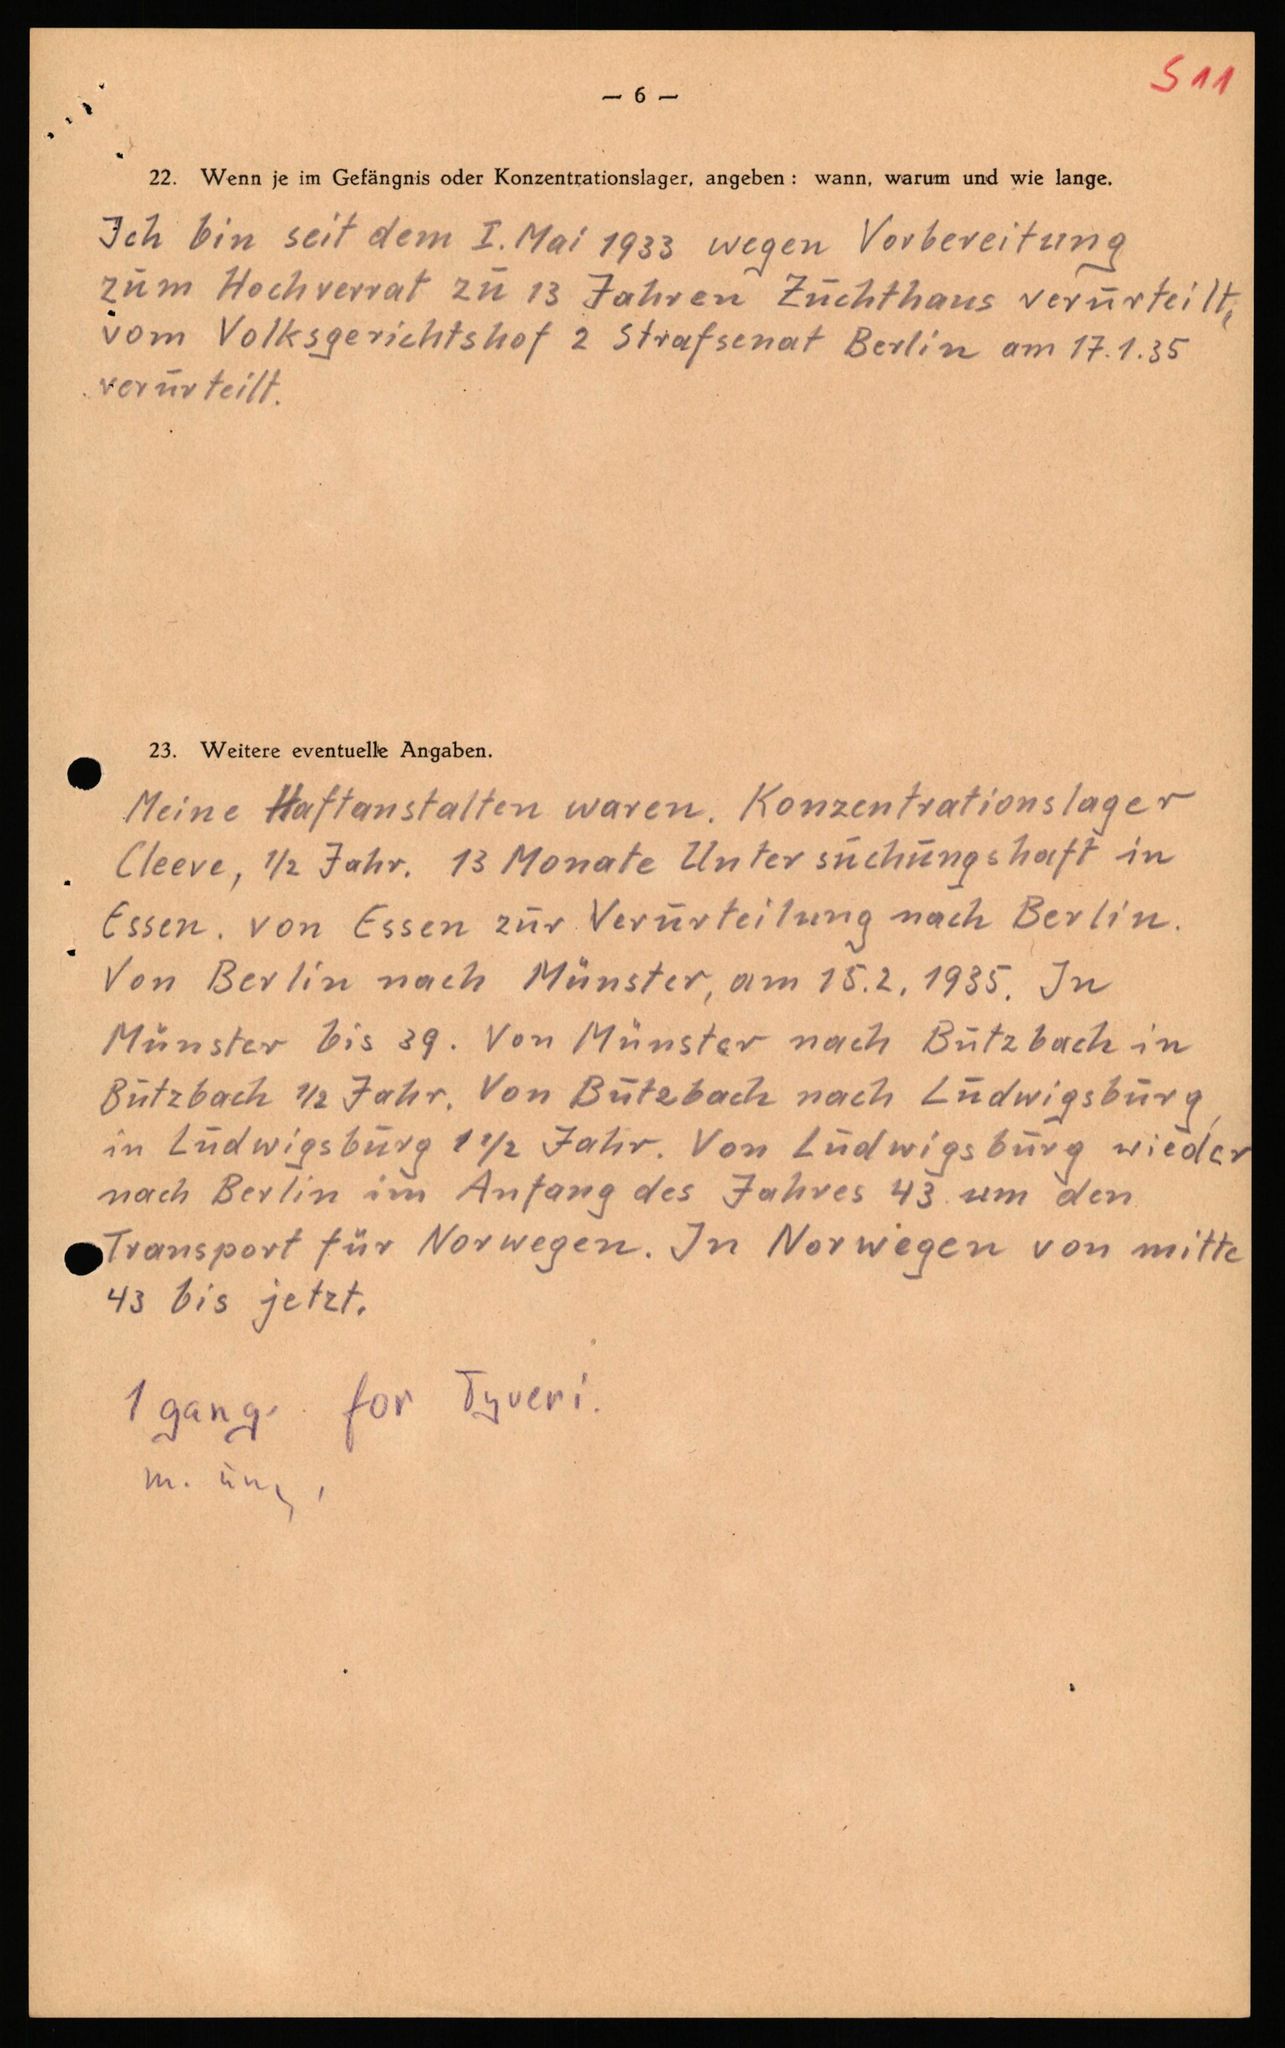 S 11
— 6 —
22. Wenn je im Gefängnis oder Konzentrationslager, angeben: wann, warum und wie lange.
Ich bin seit dem I. Mai 1933 wegen Vorbereitung
zum Hochverrat zu 13 Jahren Zuchthaus verurteilt,
vom Volksgerichtshof 2 Strafsenat Berlin am 17.1.35
verurteilt.
23. Weitere eventuelle Angaben.
Meine Haftanstalten waren. Konzentrationslager
Cleeve, 1/2 Jahr. 13 Monate Untersuchungshaft in
Essen. von Essen zur Verurteilung nach Berlin.
Von Berlin nach Münster, am 15.2.1935. In
Münster bis 39. Von Münster nach Butzbach in
Butzbach 1/2 Jahr. Von Butzbach nach Ludwigsburg,
in Ludwigsburg 1 1/2 Jahr. Von Ludwigsburg wieder
nach Berlin im Anfang des Jahres 43 um den
Transport für Norwegen. In Norwegen von mitte
43 bis jetzt.
1 gang. for Tyveri.
m.